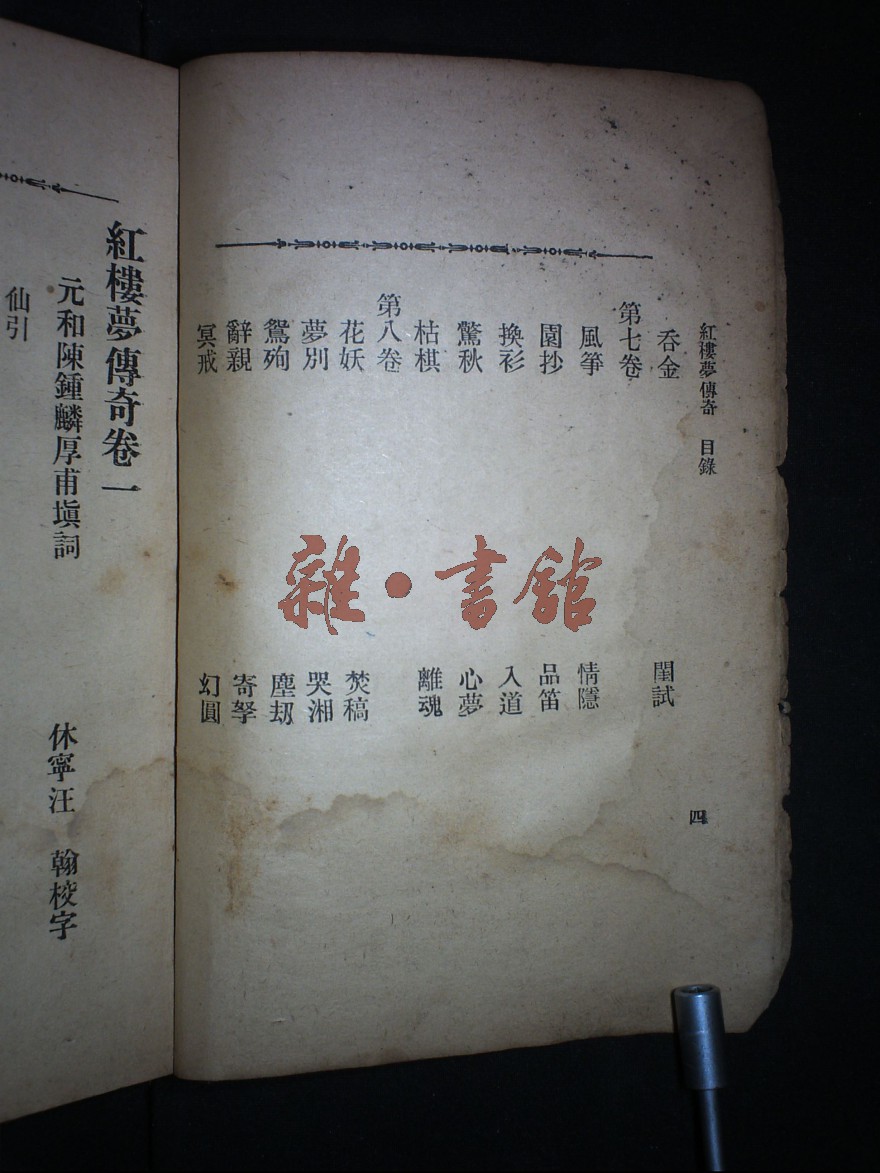 紅樓夢傳奇 目錄
四
吞金 閨試
第七卷
風箏 情隱
園抄 品笛
換衫 入道
驚秋 心夢
枯棋 離魂
第八卷
花妖 焚稿
夢別 哭湘
鴛殉 塵刼
辭親 寄孥
冥戒 幻圓
紅樓夢傳奇卷一
元和陳鍾麟厚甫塡詞 休寧汪 翰校字
仙引
雜·書館